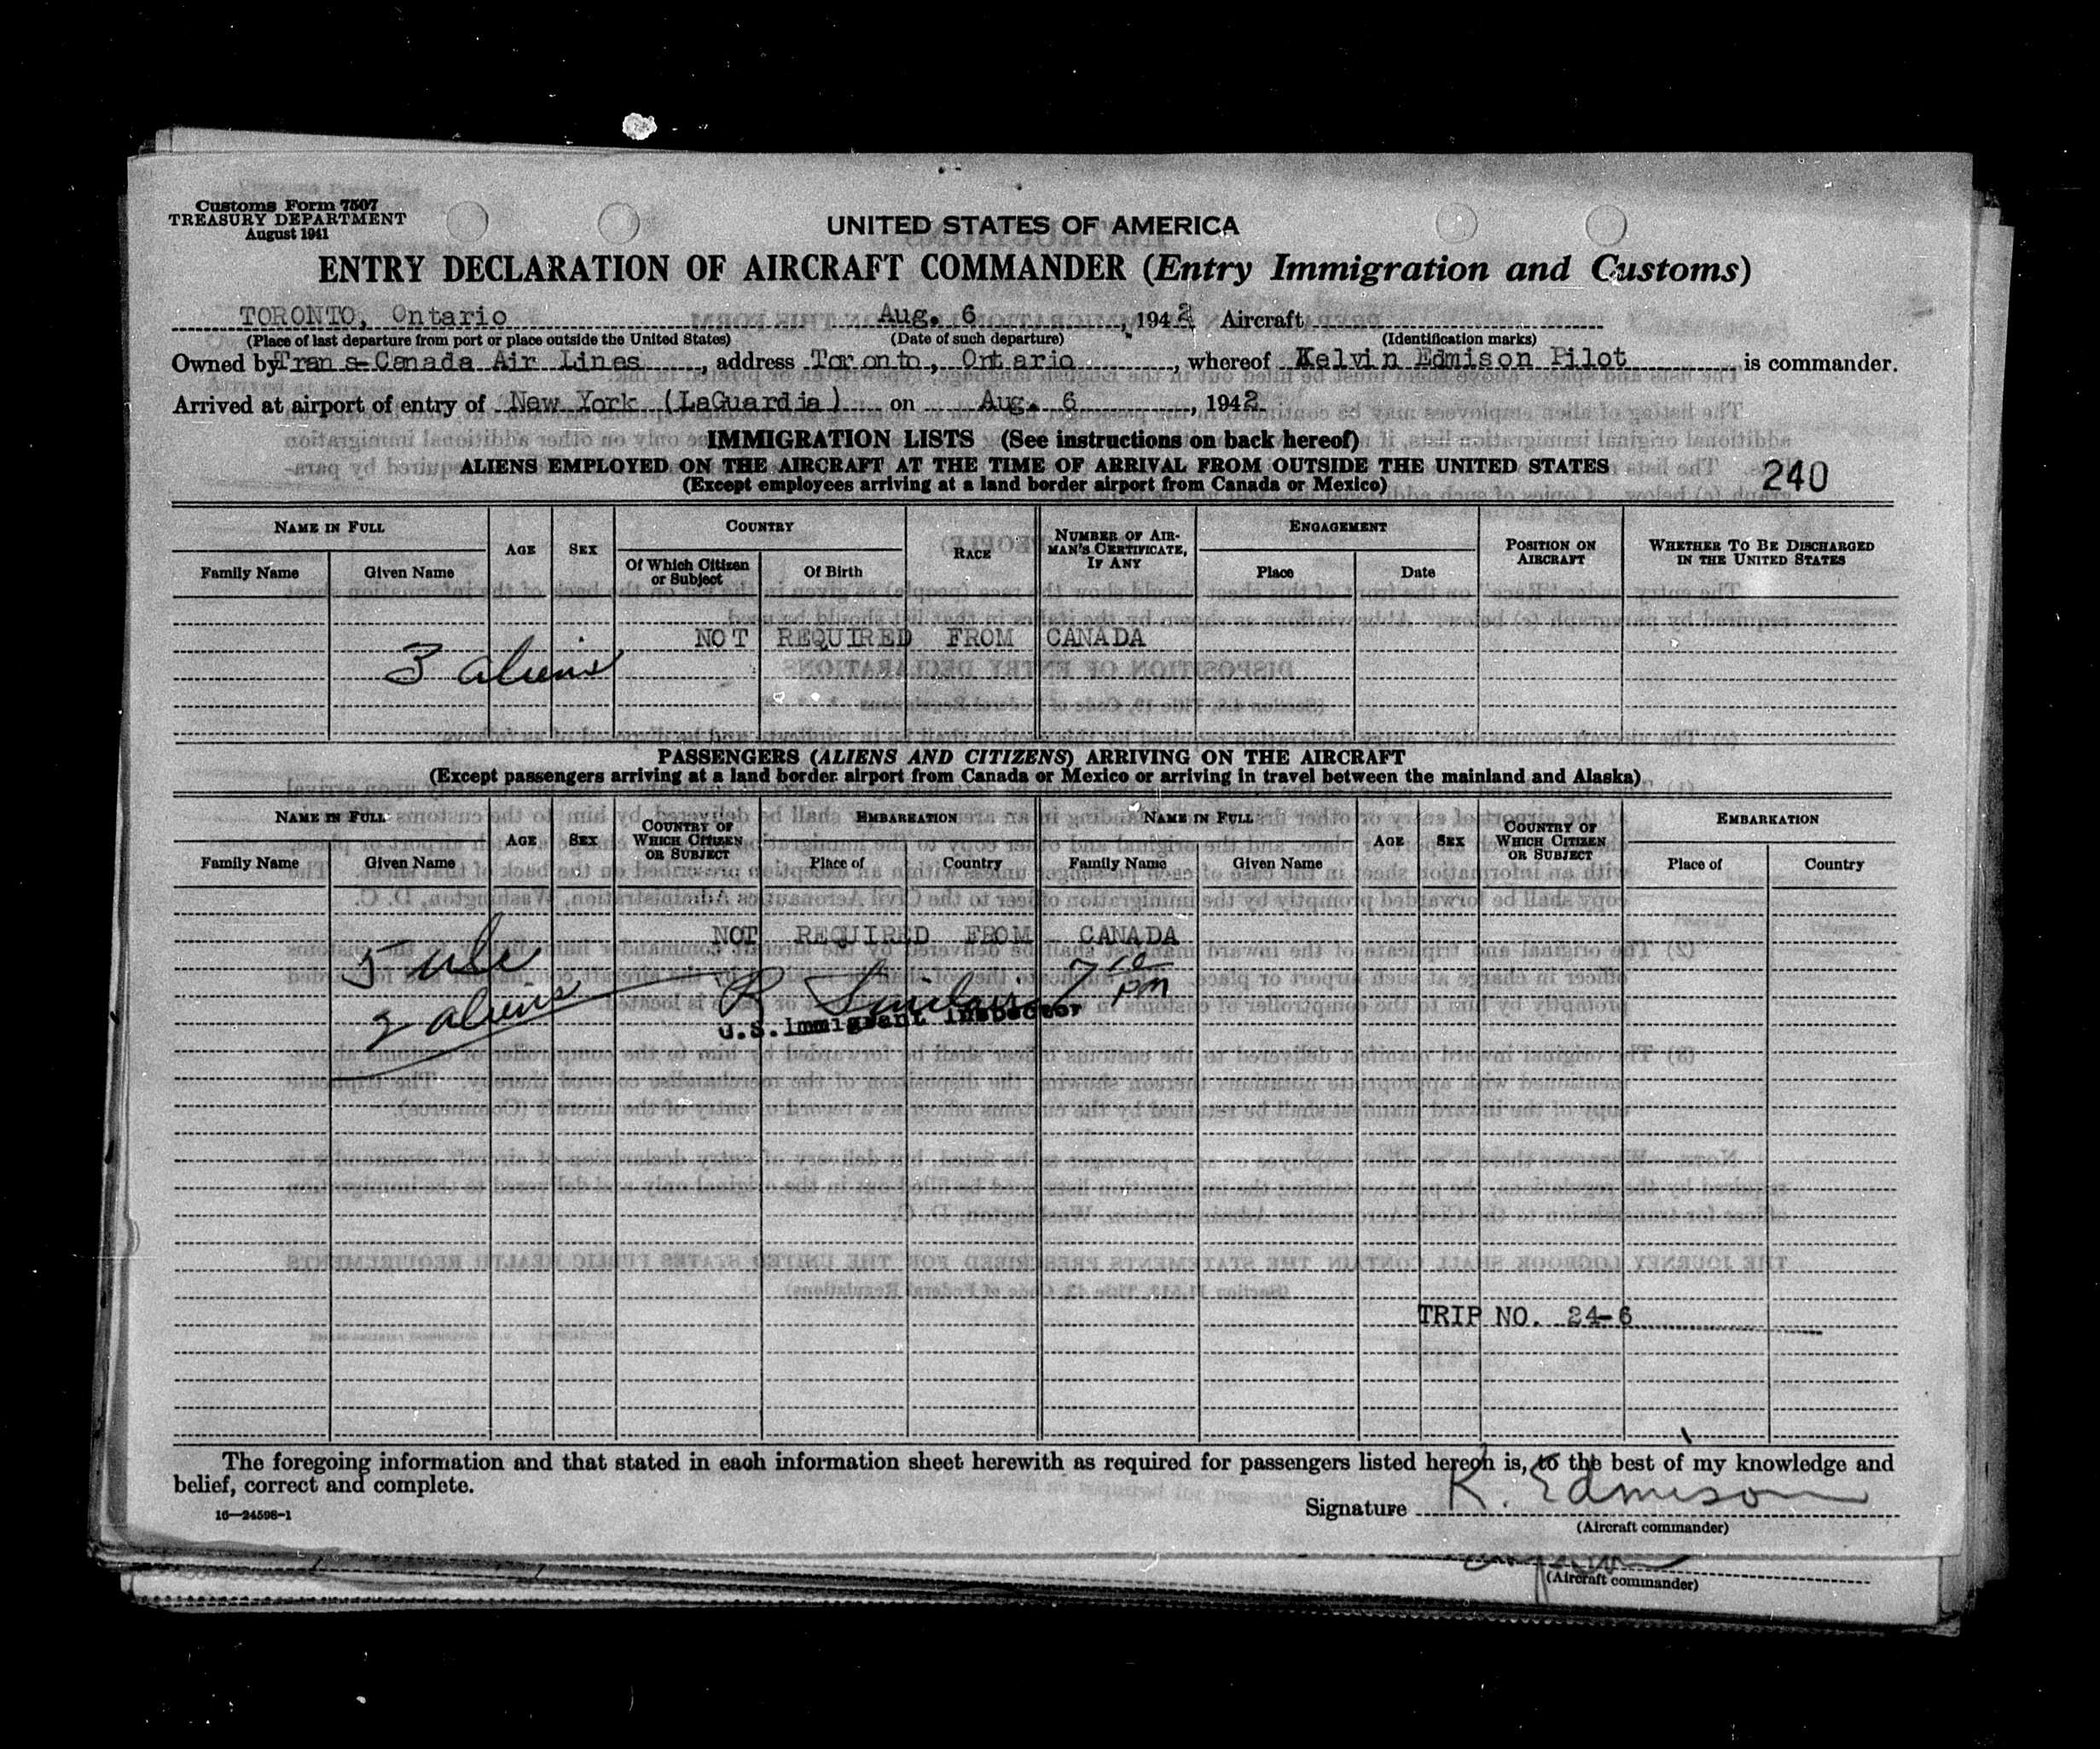 Customs Form 7507
TREASURY DEPARTMENT
August 1941
UNITED STATES OF AMERICA
ENTRY DECLARATION OF AIRCRAFT COMMANDER (Entry Immigration and Customs)
TORONTO, Ontario Aug. 6, 1942 Aircraft
(Place of last departure from port or place outside the United States) (Date of such departure) (Identification marks)
Owned by Trans-Canada Air Lines, address Toronto, Ontario, whereof Kelvin Edmison Pilot is commander.
Arrived at airport of entry of New York (LaGuardia) on Aug. 6, 1942
IMMIGRATION LISTS (See instructions on back hereof)
ALIENS EMPLOYED ON THE AIRCRAFT AT THE TIME OF ARRIVAL FROM OUTSIDE THE UNITED STATES
240
(Except employees arriving at a land border airport from Canada or Mexico)
NAME IN FULL AGE SEX COUNTRY RACE NUMBER OF AIRMAN'S CERTIFICATE, IF ANY ENGAGEMENT POSITION ON AIRCRAFT WHETHER TO BE DISCHARGED IN THE UNITED STATES
Family Name Given Name Of Which Citizen or Subject Of Birth Place Date
NOT REQUIRED FROM CANADA
3 aliens
PASSENGERS (ALIENS AND CITIZENS) ARRIVING ON THE AIRCRAFT
(Except passengers arriving at a land border airport from Canada or Mexico or arriving in travel between the mainland and Alaska)
NAME IN FULL AGE SEX COUNTRY OF WHICH CITIZEN OR SUBJECT EMBARKATION NAME IN FULL AGE SEX COUNTRY OF WHICH CITIZEN OR SUBJECT EMBARKATION
Family Name Given Name Place of Country Family Name Given Name Place of Country
NOT REQUIRED FROM CANADA
5 usc
2 aliens R Sinclair 7 10 PM
U.S. Immigrant Inspector
TRIP NO. 24-6
The foregoing information and that stated in each information sheet herewith as required for passengers listed hereon is, to the best of my knowledge and
belief, correct and complete.
Signature K. Edmison
16—24598-1
(Aircraft commander)
(Aircraft commander)